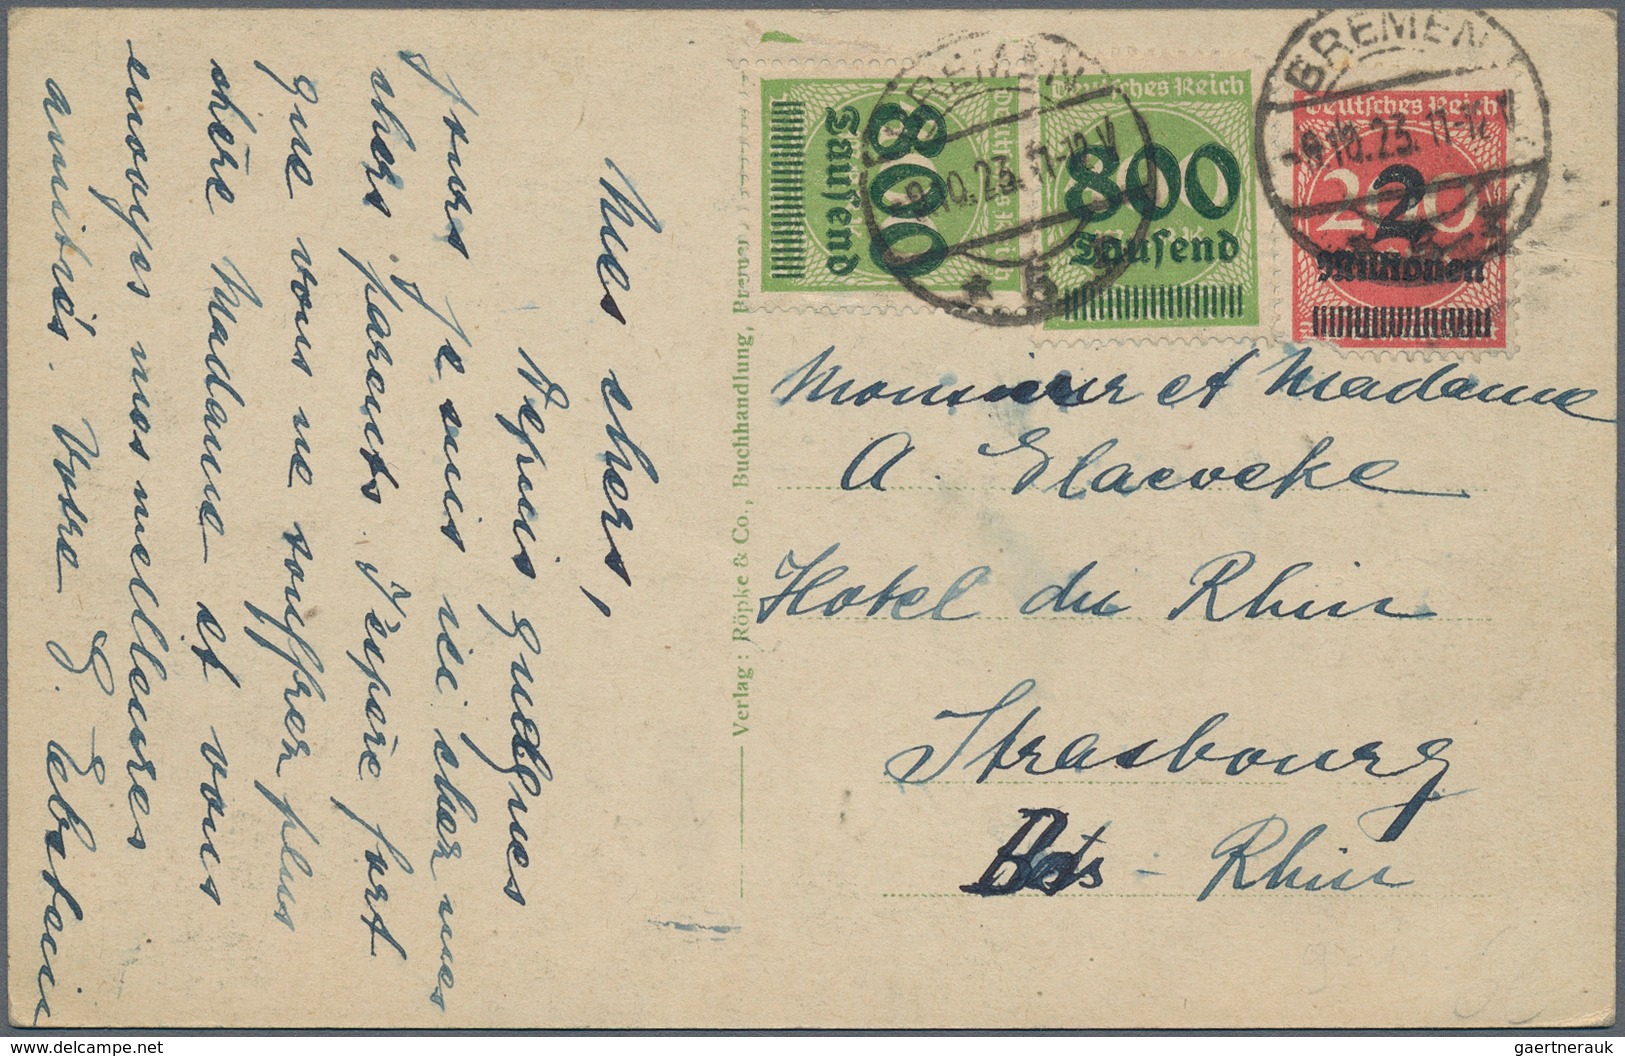 Mes chers,
Depuis quelques
jours je suis ici chez mes
chers parents. J'espère fort
que vous ne souffrez plus
chère Madame et vous
envoyes mes meilleures
amitiés. Votre G. Ebstein
Verlag: Röpke & Co., Buchhandlung, Bremen
800
Tausend
Deutsches Reich
800
Tausend
Deutsches Reich
200
2
Millionen
BREMEN
-9.10.23. 11-12 V
* 5 *
BREMEN
-9.10.23. 11-12 V
Monsieur et Madame
A. Glaevcke
Hotel du Rhin
Strasbourg
Bas - Rhin
gaertnerauk